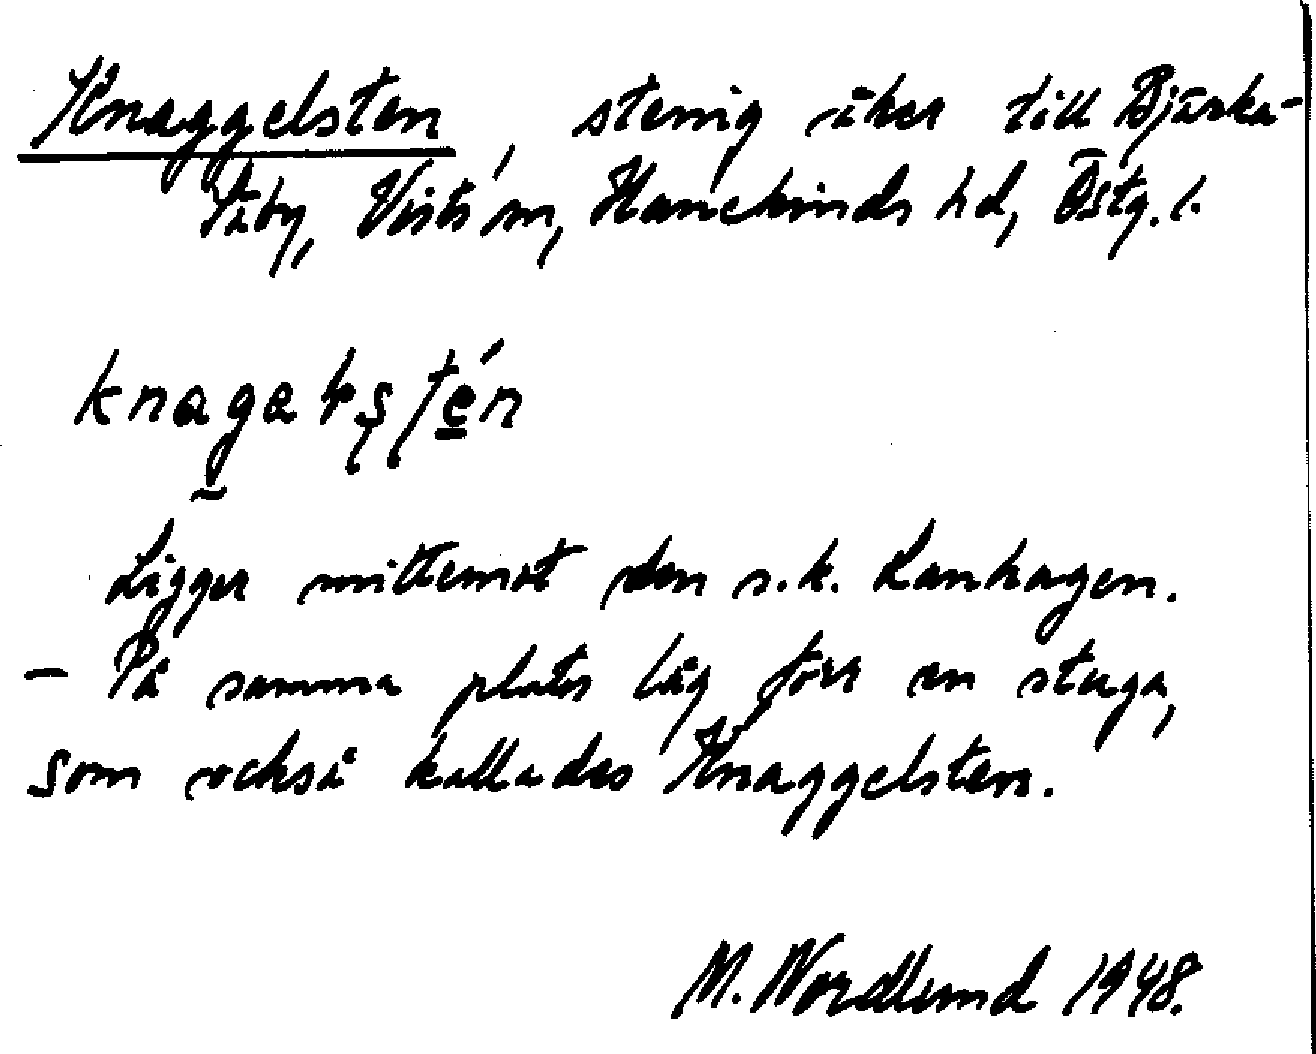 Knaggelsten, stenig åker till Bjärka-
Täby, Vists sn, Hanekinds hd, Östg. l.
Ligger mittemot den s.k. Lanhagen.
– På samma plats låg förr en stuga,
som också kallades Knaggelsten.
M. Nordlund 1948.